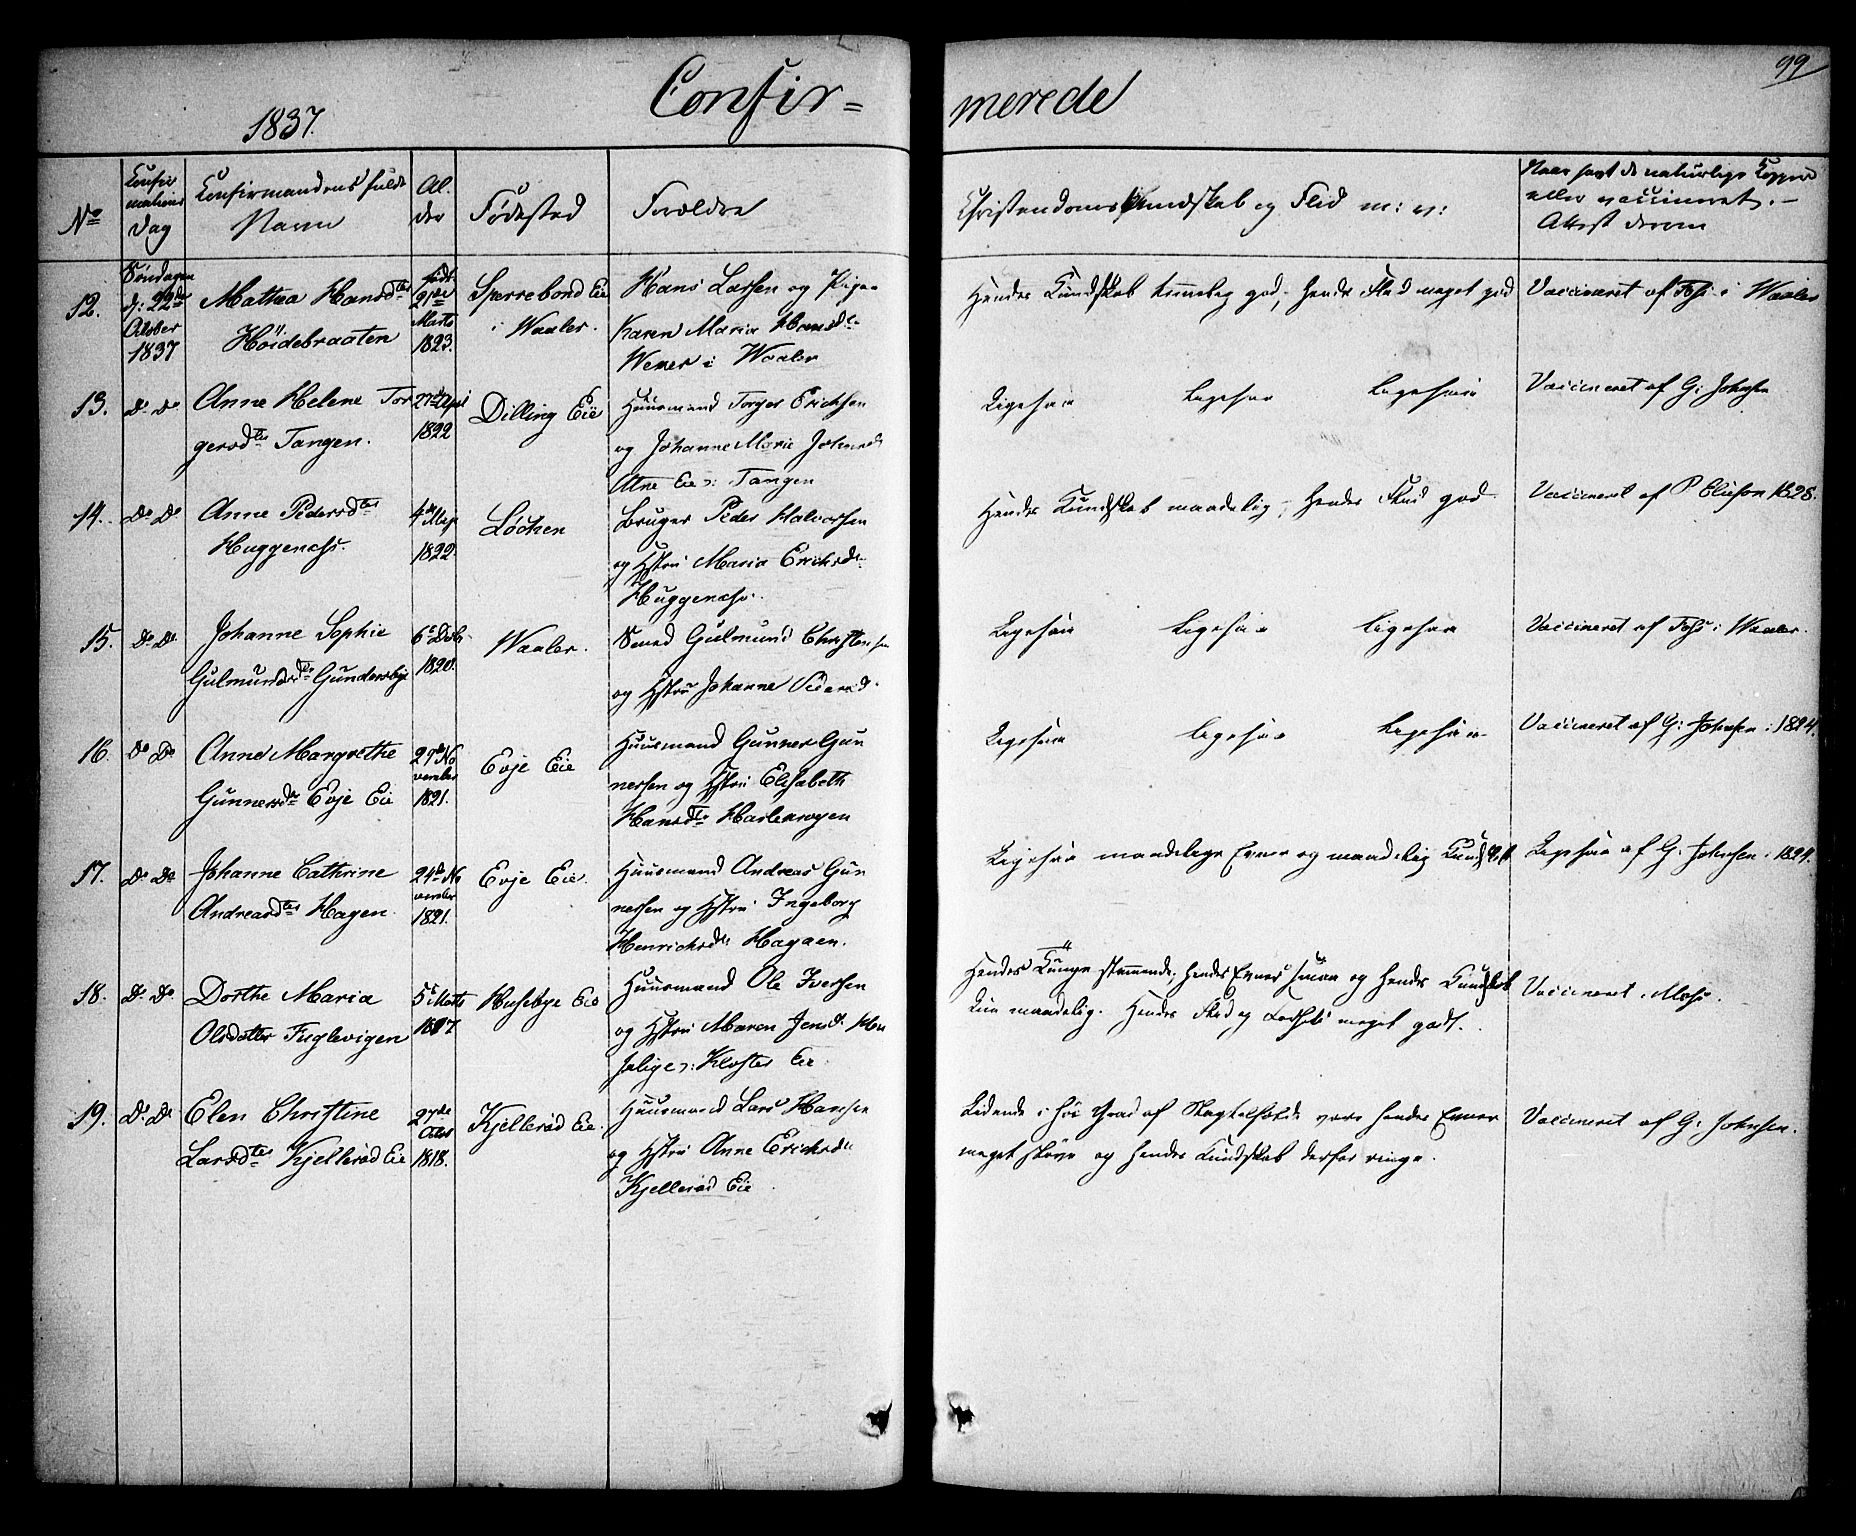 99
1837.
Confir=
merede
No
Confir
mations
Dag
Confirmandens fulde
Navn
Al.
der
Födested
Forældre
Christendoms Kundskab og Flid m: v:
Naar havt de naturlige Kopper
eller vaccineret.–
Attest derom
12.
Söndagen
d: 22de
October
1837
Mathea Hansdtr
Höidebraaten
födt
21de
Marts
1823.
Sperrebond Eie
i Waaler.
Hans Larsen og Pige
Karen Maria Hansdr
i Waaler
Hendes Kundskab temmelig god, hendes Flid meget god
Vaccineret af Foss i Waaler
13.
Do Do
Anne Helene Tor
gersdtr Tangen.
27de April
1822
Dilling Eie
Huusmand Torger Ericksen
og Johanne Marie
Eie i Tangen
Ligesaa Ligesaa Ligesaa
Vaccineret af G: Johnsen
14.
Do Do
Anne Pedersdtr
Huggenæss.
4de May
1822.
Löchen
Bruger Peder Halvorsen
og Hstru Maria Ericksdr
Huggenæss.
Hendes Kundskab maadelig, hendes Flid god
Vaccineret af P Eliesen 1828.
15.
Do Do
Johanne Sophie
Gulmundsdtr Gundersbye
6te
1820.
Waaler.
Smed Gulmund Christensen
og Hstru Johanne
Ligesaa Ligesaa Ligesaa
Vaccineret af Foss i Waaler.
16.
Do Do
Anne Margrethe
Gunnersdtr Evje Eie
29de No
vember
1821.
Evje Eie
Huusmand Gunner Gun
nersen og Hstru Elisabeth
Hansdtr
Ligesaa Ligesaa Ligesaa
Vaccineret af G: Johnsen i 1824.
17.
Do Do
Johanne Cathrine
Andreasdtr Hagen
24de No
vember
1821.
Evje Eie.
Huusmand Andreas Gun
nersen og Hstru Ingeborg
Henricksdr Hagaen.
Ligesaa maadelige Evner og maadelig Kundskab
Ligesaa af G: Johnsen i 1824.
18.
Do Do
Dorthe Maria
Olsdatter Fuglevigen
5te Marts
1817
Husebye Eie
Huusmand Ole Iversen
og Hstru Maren Jensdr
Kloster Eie
Hendes Tunge stammende, hendes Evner smaa og hendes Kundskab
kun maadelig. Hendes Flid og Forhold meget godt.
Vaccineret i Moss.
19.
Do Do
Elen Christine
Larsdtr Kjelleröd Eie
27de
Octbr
1818.
Kjelleröd Eie.
Huusmand Lars Hansen
og Hstru Anne Ericksdr
Kjelleröd Eie
Lidende i höi Grad af vare hendes Evner
meget slöve og hendes Kundskab derfor ringe.
Vaccineret af G: Johnsen.